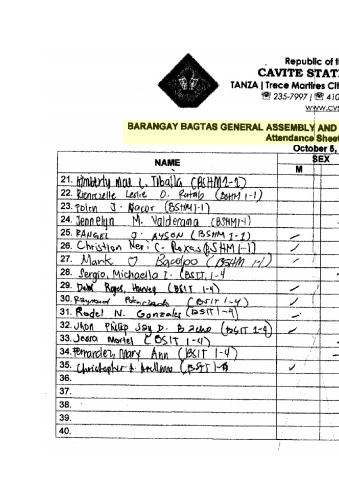 Republic of t
CAVITE STAT
TANZA | Trece Martires Cit
☏ 235-7997 | ☏ 410
www.cvs
BARANGAY BAGTAS GENERAL ASSEMBLY AND
Attendance Sheet
October 5,
NAME
SEX
M
21. Kimberly Mae C. (BSHM 2-2)
22. Leslie D. (BSHM 1-1)
23. J. (BSHM 1-1)
24. Jennelyn M. Valderama (BSHM1-1)
25. RANGEL J. AYSON (BSHM 1-1)
26. Christian Neri C. Roxas (BSHM 1-1)
27. Mark (BSHM 1-1)
28. Sergio, Michaella I. (BSIT, 1-4
29. Harvey (BSIT 1-4)
30. Raymond (BSIT 1-4)
31. Rodel N. Gonzales (BSIT 1-4)
32. Jhon Philip Jay D. (BSIT 1-4)
33. Mariel (BSIT 1-4)
34. Fernandez, Mary Ann (BSIT 1-4)
35. Christopher (BSIT 1-4)
36.
37.
38.
39.
40.